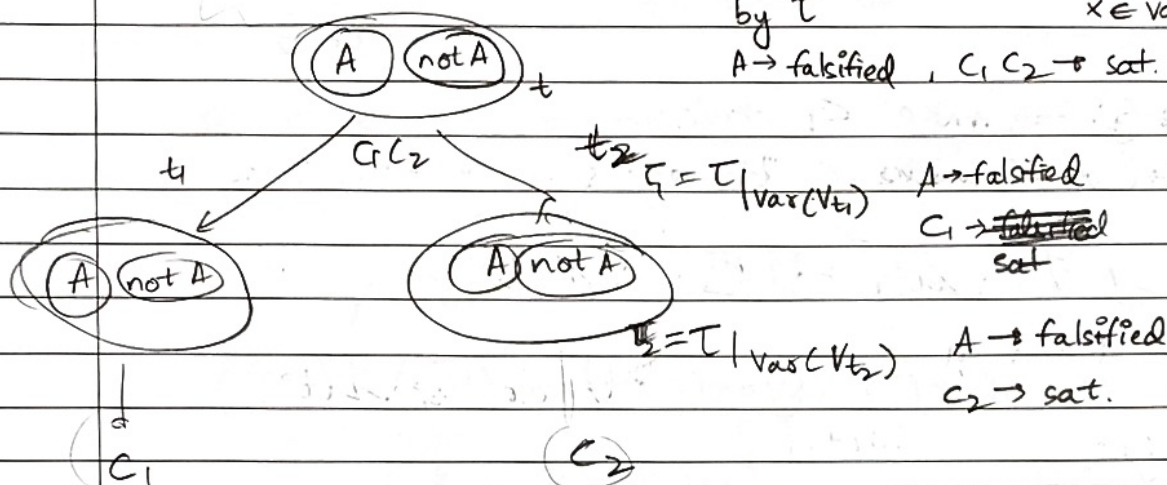 by τ x ∈ va
A → falsified , C₁ C₂ → sat.
A not A t
t₁ C₁ C₂ t₂
τ₁ = τ|var(Vt₁) A → falsified
C₁ → falsified
sat
A not A A not A
τ₂ = τ|var(Vt₂) A → falsified
C₂ → sat.
C₁ C₂